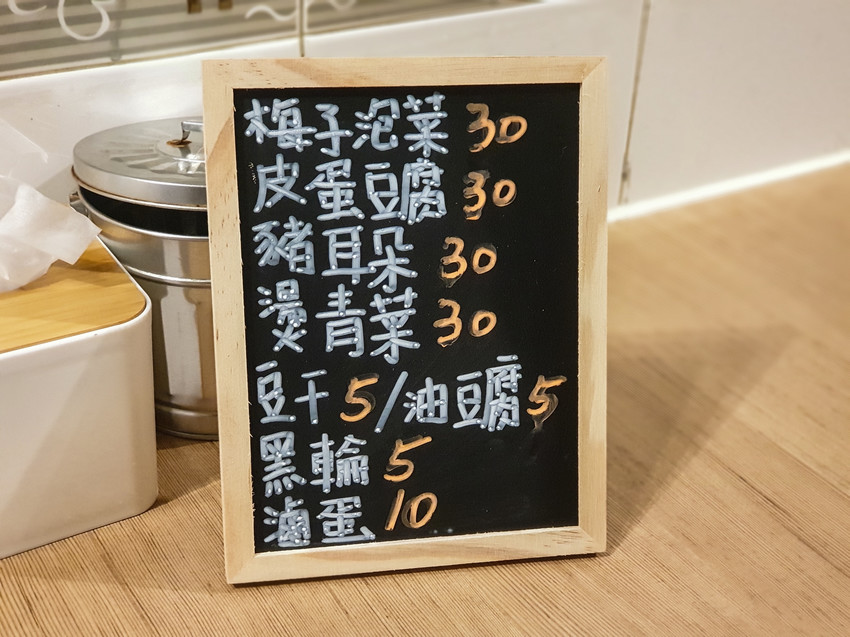 梅子泡菜 30
皮蛋豆腐 30
豬耳朵 30
燙青菜 30
豆干 5/油豆腐 5
黑輪 5
滷蛋 10